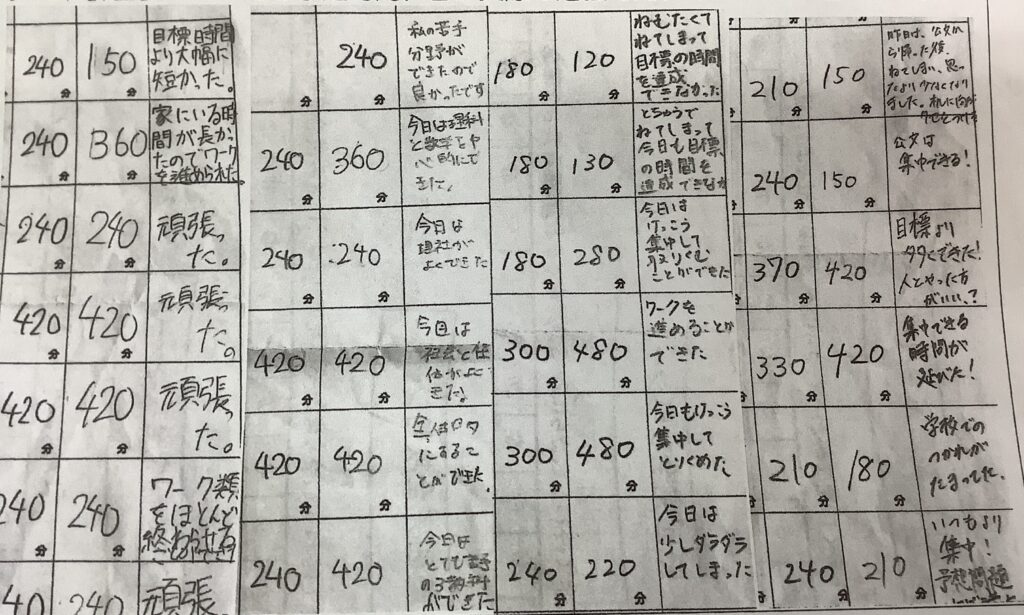 240
分
150
分
目標時間
より大幅に
短かった。
240
分
360
分
家にいる時
間が長か
たのでワーク
を進められた
240
分
240
分
頑張っ
た。
420
分
420
分
頑張っ
た。
420
分
420
分
頑張っ
た。
240
分
240
分
ワーク類
をほとんど
終わらせる
40
240
頑張
分
240
分
私の苦手
分野が
できたので
良かったです
240
分
360
分
今日は理科
と数学を中
心的にで
きた。
240
分
240
分
今日は
理社が
よくできた
420
分
420
分
今日は
きた。
420
分
420
分
にすること
ができた。
240
分
420
分
今日は
ができた
180
分
120
分
ねむたくて
ねてしまって
目標の時間
を達成
できなかった
180
分
130
分
とちゅうで
ねてしまって
今日も目標
の時間を
達成できなか
180
分
280
分
今日は
けっこう
集中して
取りくむ
ことができた
300
分
480
分
ワークを
進めることが
できた
300
分
480
分
今日もけっこう
集中して
とりくめた
240
分
220
分
今日は
少しダラダラ
してしまった
210
分
150
分
昨日は、公文か
ら帰った後、
ねてしまい、思っ
たより少なくなり
ました。机に向か
240
分
150
分
公文は
集中できる!
370
分
420
分
目標より
多くできた!
人とやった方
がいい、?
330
分
420
分
集中できる
時間が
延びた!
210
分
180
分
学校での
つかれが
たまってた、
240
分
210
分
いつもより
集中!
予想問題